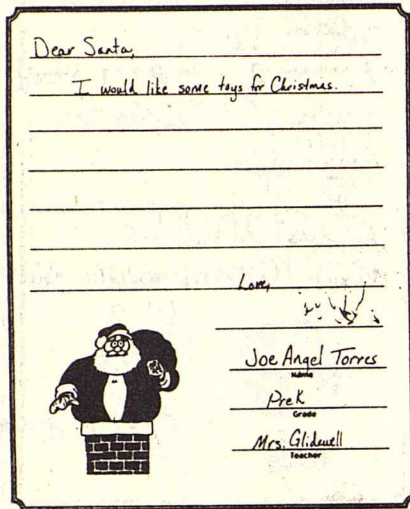 Dear Santa,
I would like some toys for Christmas.
Love,
Joe Angel Torres
Name
PreK
Grade
Mrs. Glidewell
Teacher